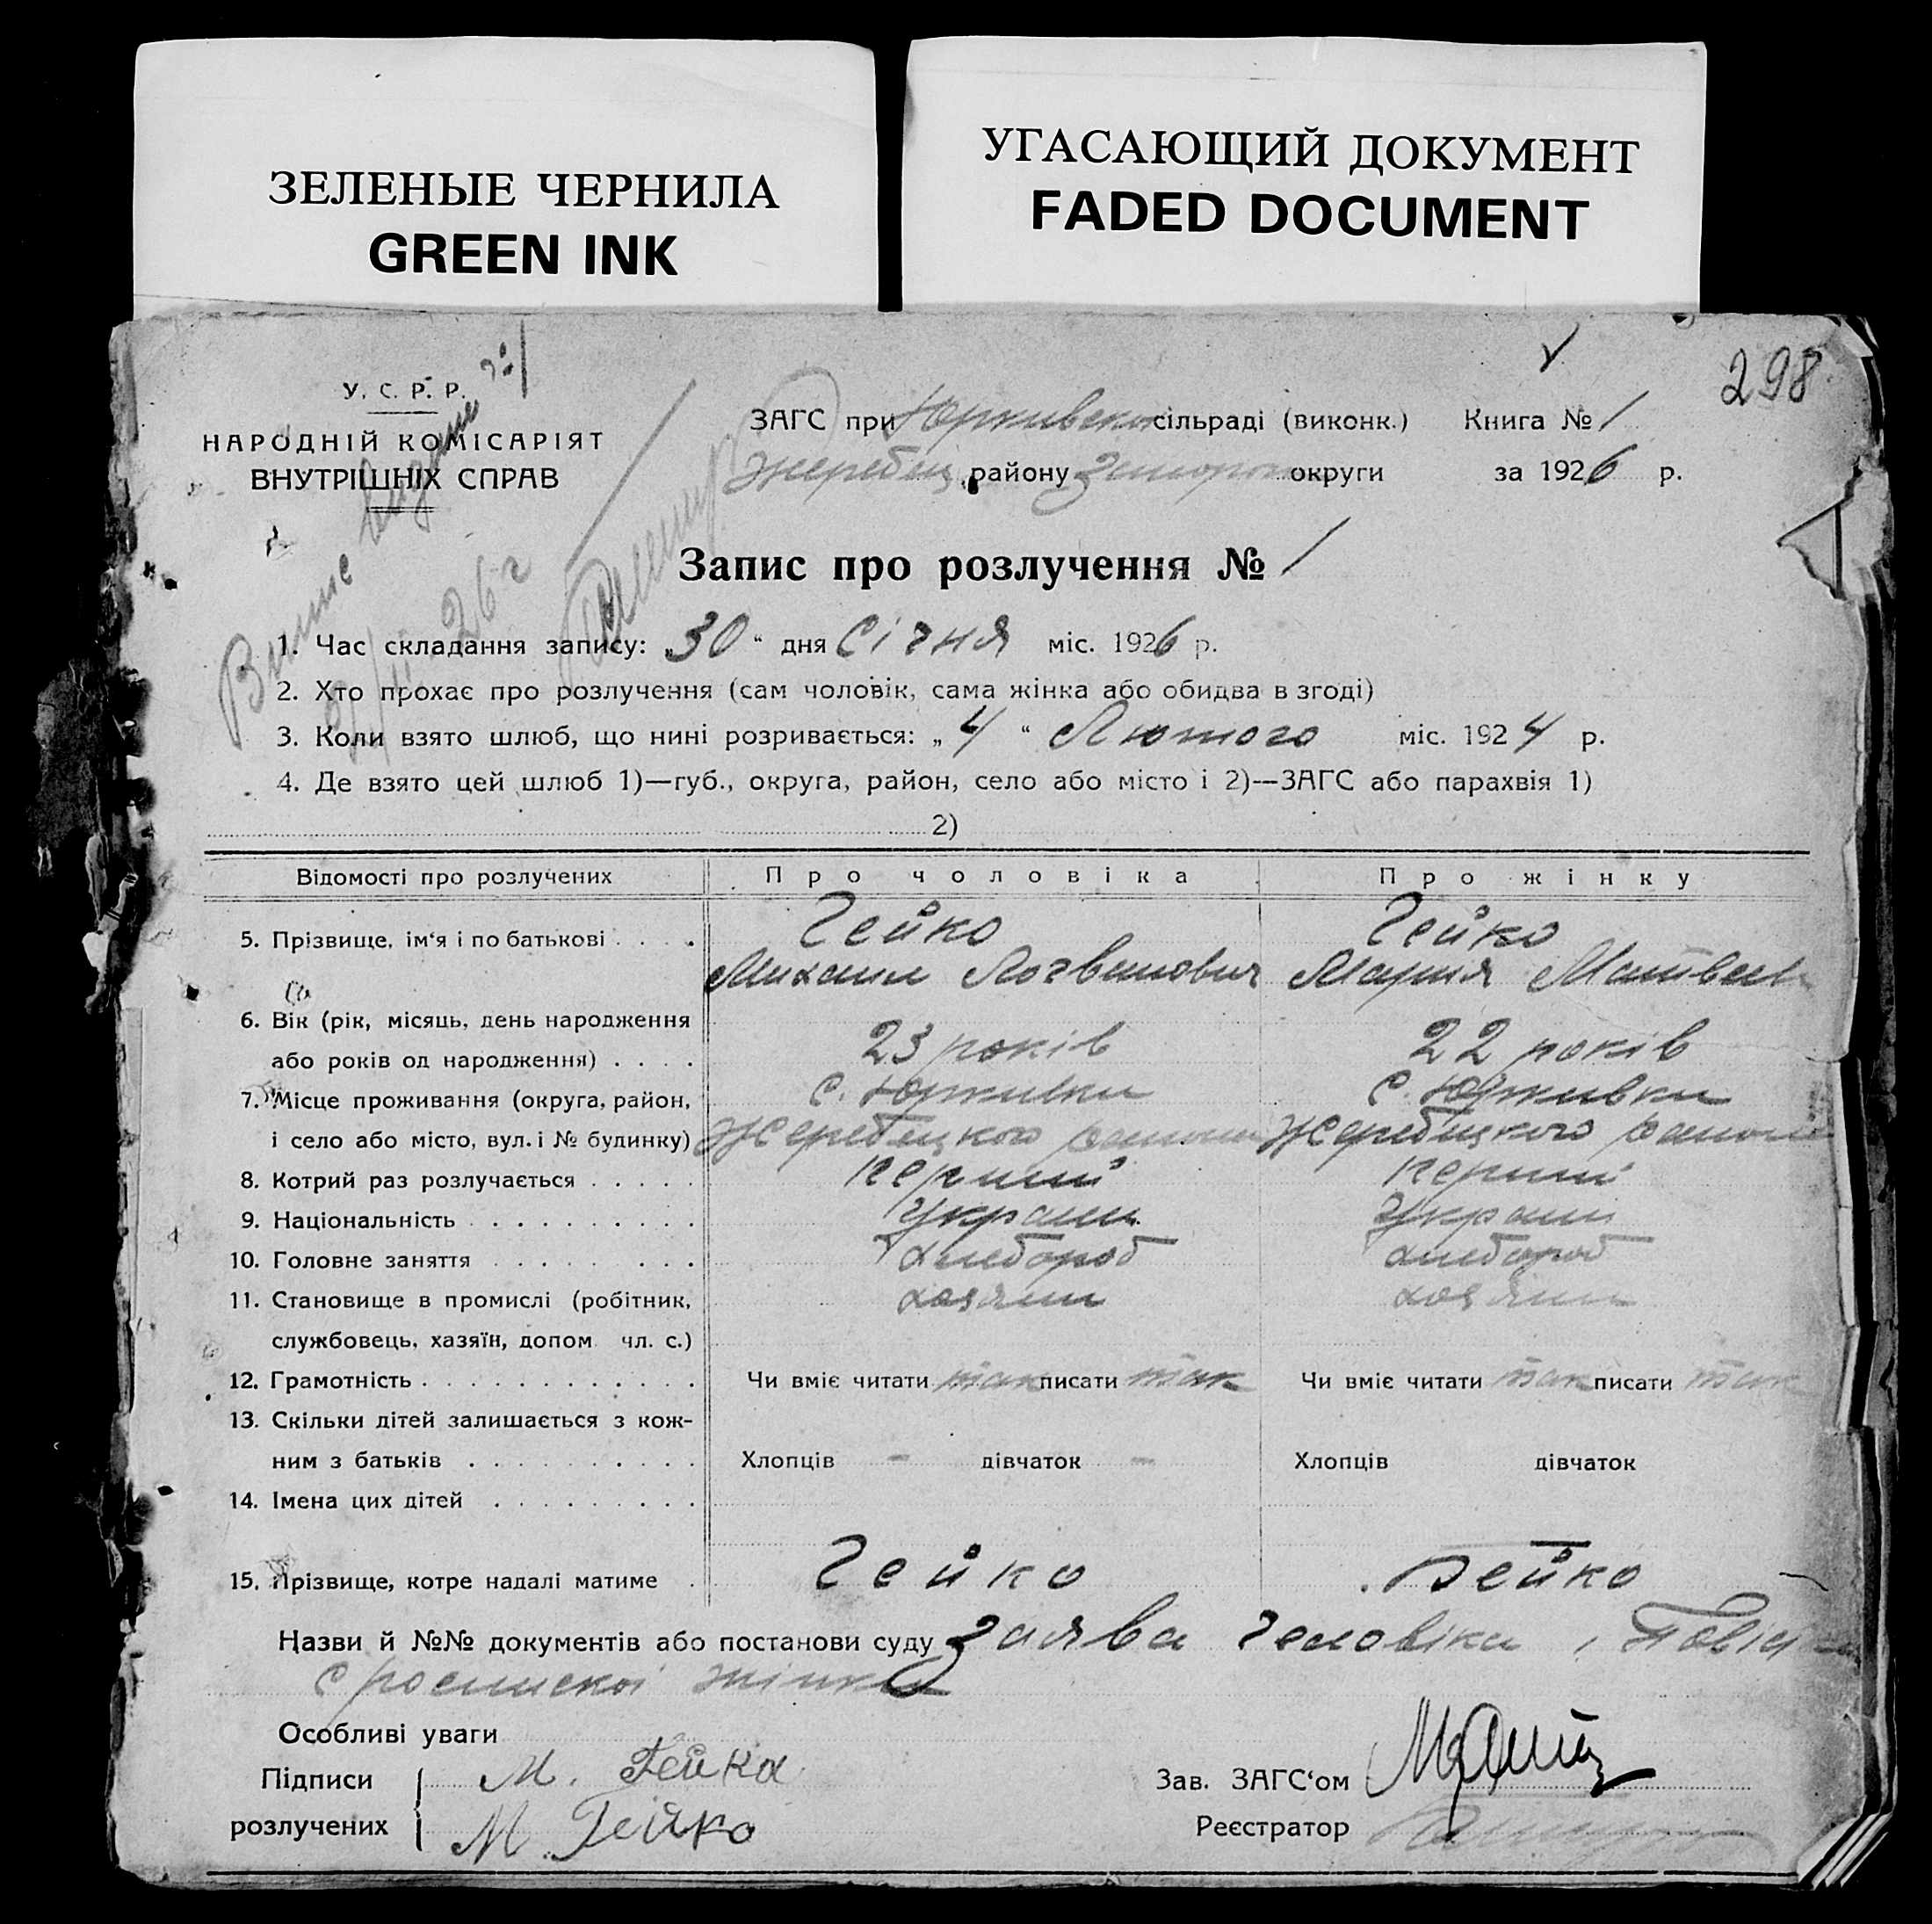 ЗЕЛЕНЫЕ ЧЕРНИЛА
GREEN INK
УГАСАЮЩИЙ ДОКУМЕНТ
FADED DOCUMENT
298
У. С. Р. Р.
НАРОДНІЙ КОМІСАРІЯТ
ВНУТРІШНІХ СПРАВ
ЗАГС при сільраді (виконк.) Книга № 1
Жеребец. району округи за 1926 р.
26 г
Запис про розлучення № 1
1. Час складання запису: „30“ дня Січня міс. 1926 р.
2. Хто прохає про розлучення (сам чоловік, сама жінка або обидва в згоді)
3. Коли взято шлюб, що нині розривається: „4“ Лютого міс. 1924 р.
4. Де взято цей шлюб 1)—губ., округа, район, село або місто і 2)—ЗАГС або парахвія 1)
2)
Відомості про розлучених Про чоловіка Про жінку
5. Прізвище, ім‘я і по батькові . . . . Гейко Гейко
Михаил Логвинович Мария Матвеев
6. Вік (рік, місяць, день народження
або років од народження) . . . . 23 років 22 років
7. Місце проживання (округа, район, с. Юрживки с. Юрживки
і село або місто, вул. і № будинку) Жеребецкого району Жеребецкого району
8. Котрий раз розлучається . . . . . перший перший
9. Національність . . . . . . . . . . Украин. Украин
10. Головне заняття . . . . . . . . . хлебороб хлебороб
11. Становище в промислі (робітник, хозяин хозяин
службовець, хазяїн, допом. чл. с.)
12. Грамотність . . . . . . . . . . . . Чи вміє читати так писати так Чи вміє читати так писати так
13. Скільки дітей залишається з кож-
ним з батьків . . . . . . . . . . Хлопців - дівчаток - Хлопців дівчаток
14. Імена цих дітей . . . . . . . . .
15. Прізвище, котре надалі матиме . Гейко Гейко
Назви й №№ документів або постанови суду заява чоловіка,
с роспиской жінки
Особливі уваги
Підписи М. Гейка Зав. ЗАГС‘ом
розлучених М. Гейко Реєстратор